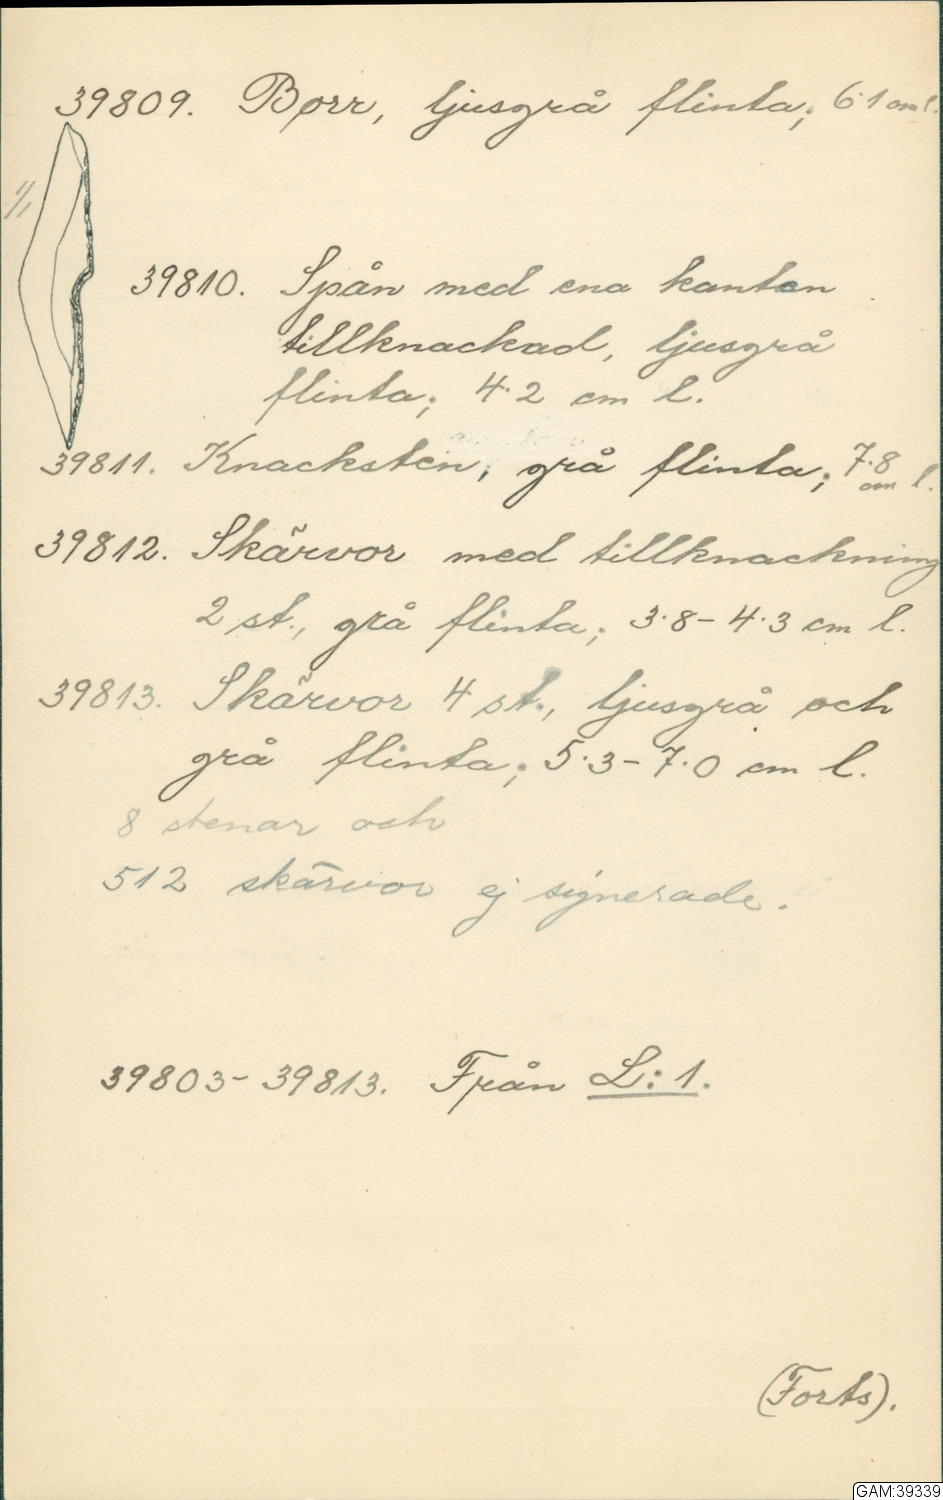 39809. Borr, ljusgrå flinta; 6·1 cm l.
1/1
39810. Spån med ena kanten
tillknackad, ljusgrå
flinta; 4·2 cm l.
39811. Knacksten, grå flinta; 7·8 cm l.
39812. Skärvor med tillknackning
2 st., grå flinta; 3·8-4·3 cm l.
39813. Skärvor 4 st., ljusgrå och
grå flinta; 5·3-7·0 cm l.
8 stenar och
512 skärvor ej signerade.
39803-39813. Från L:1.
(Forts).
GAM:39339